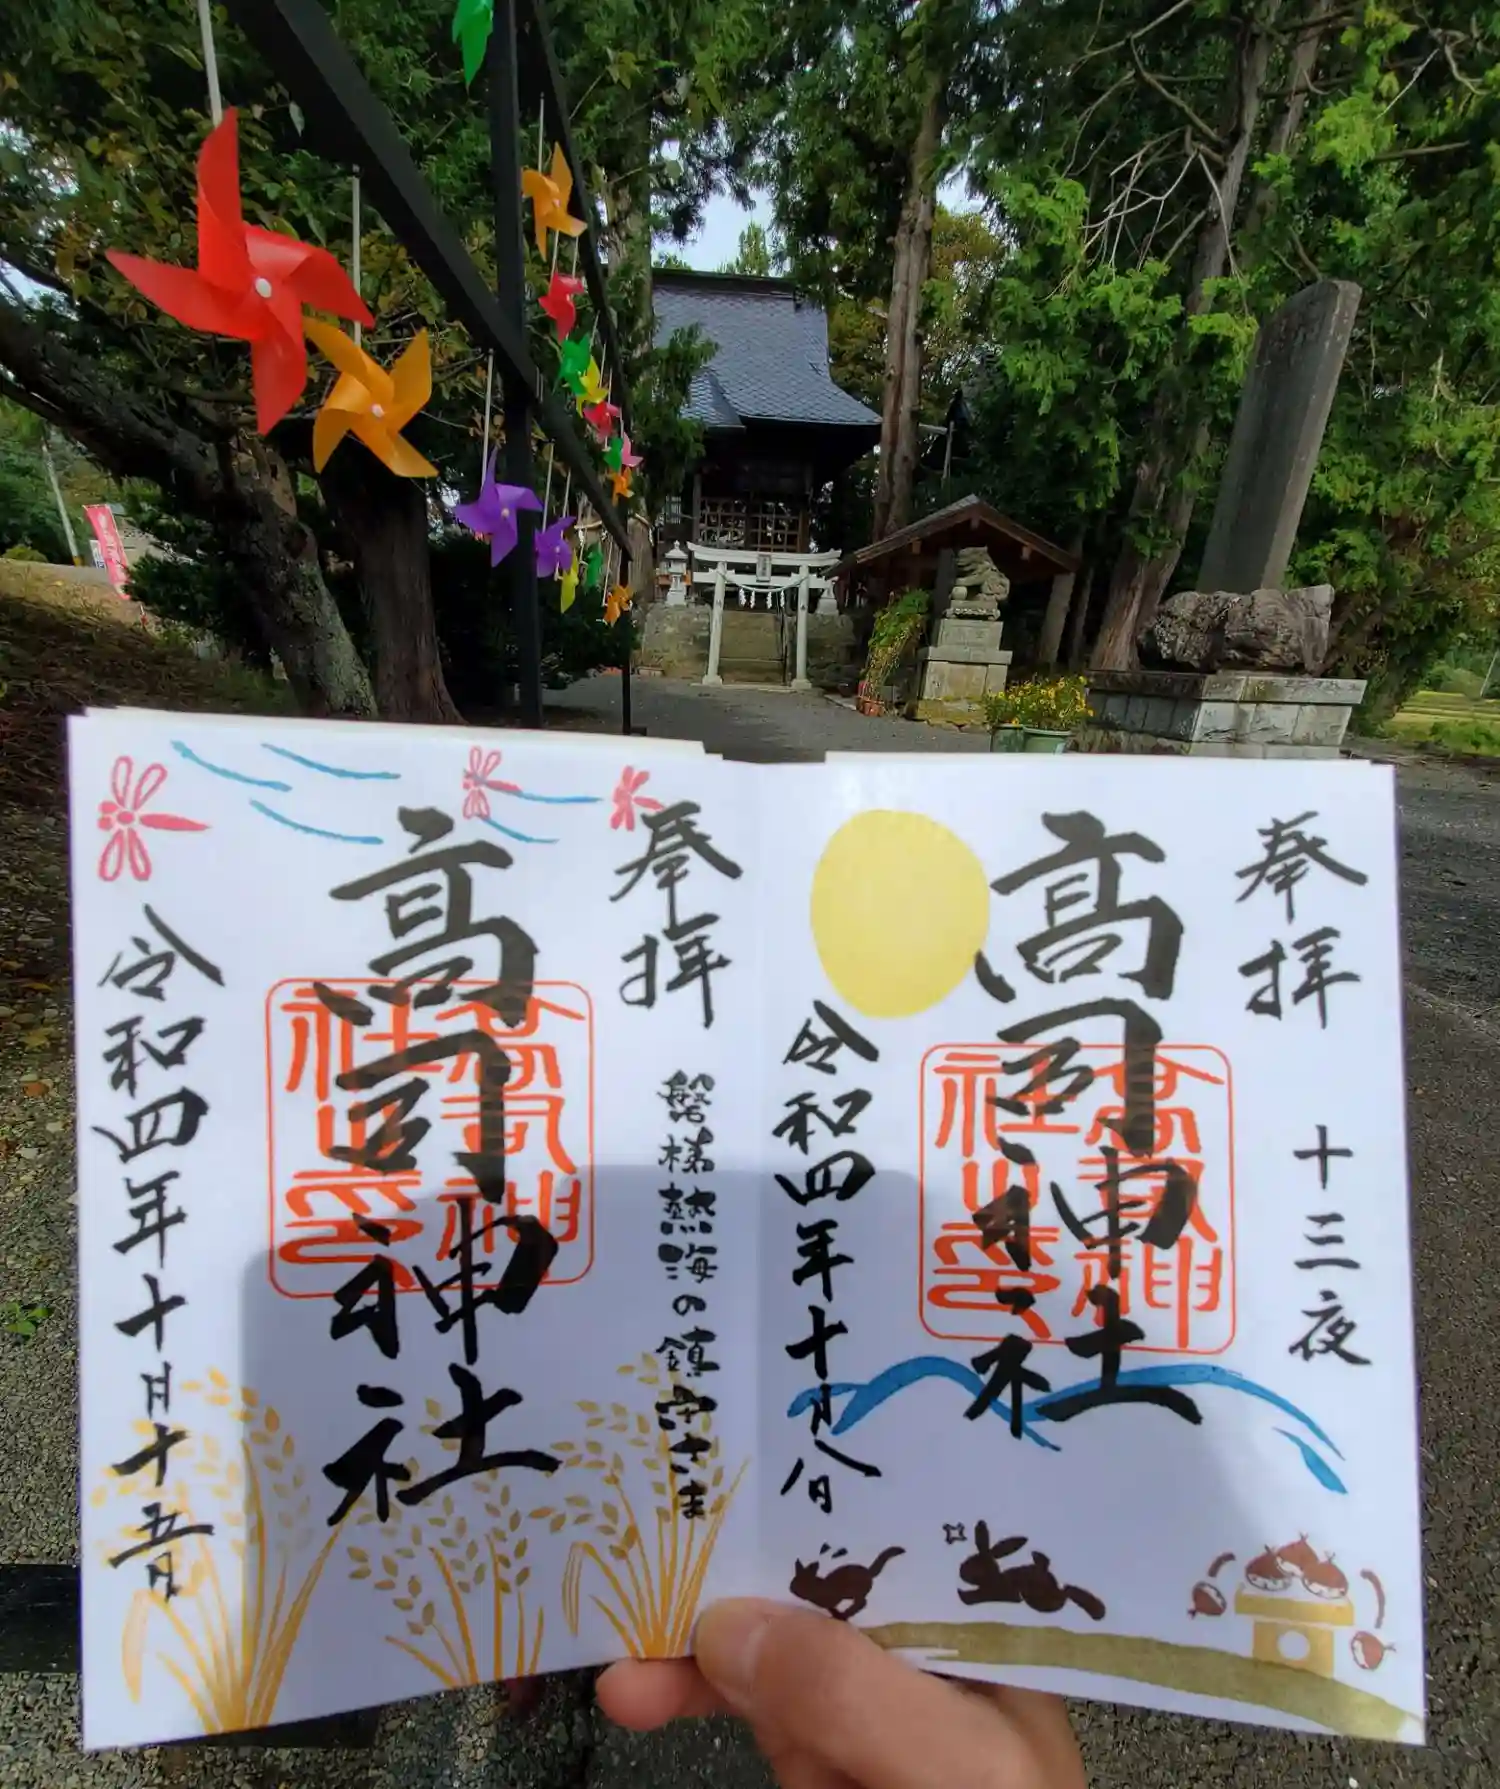 奉拝
十三夜
高司神社
高司神社之印
令和四年十月八日
奉拝
磐梯熱海の鎮守さま
高司神社
高司神社之印
令和四年十月十五日